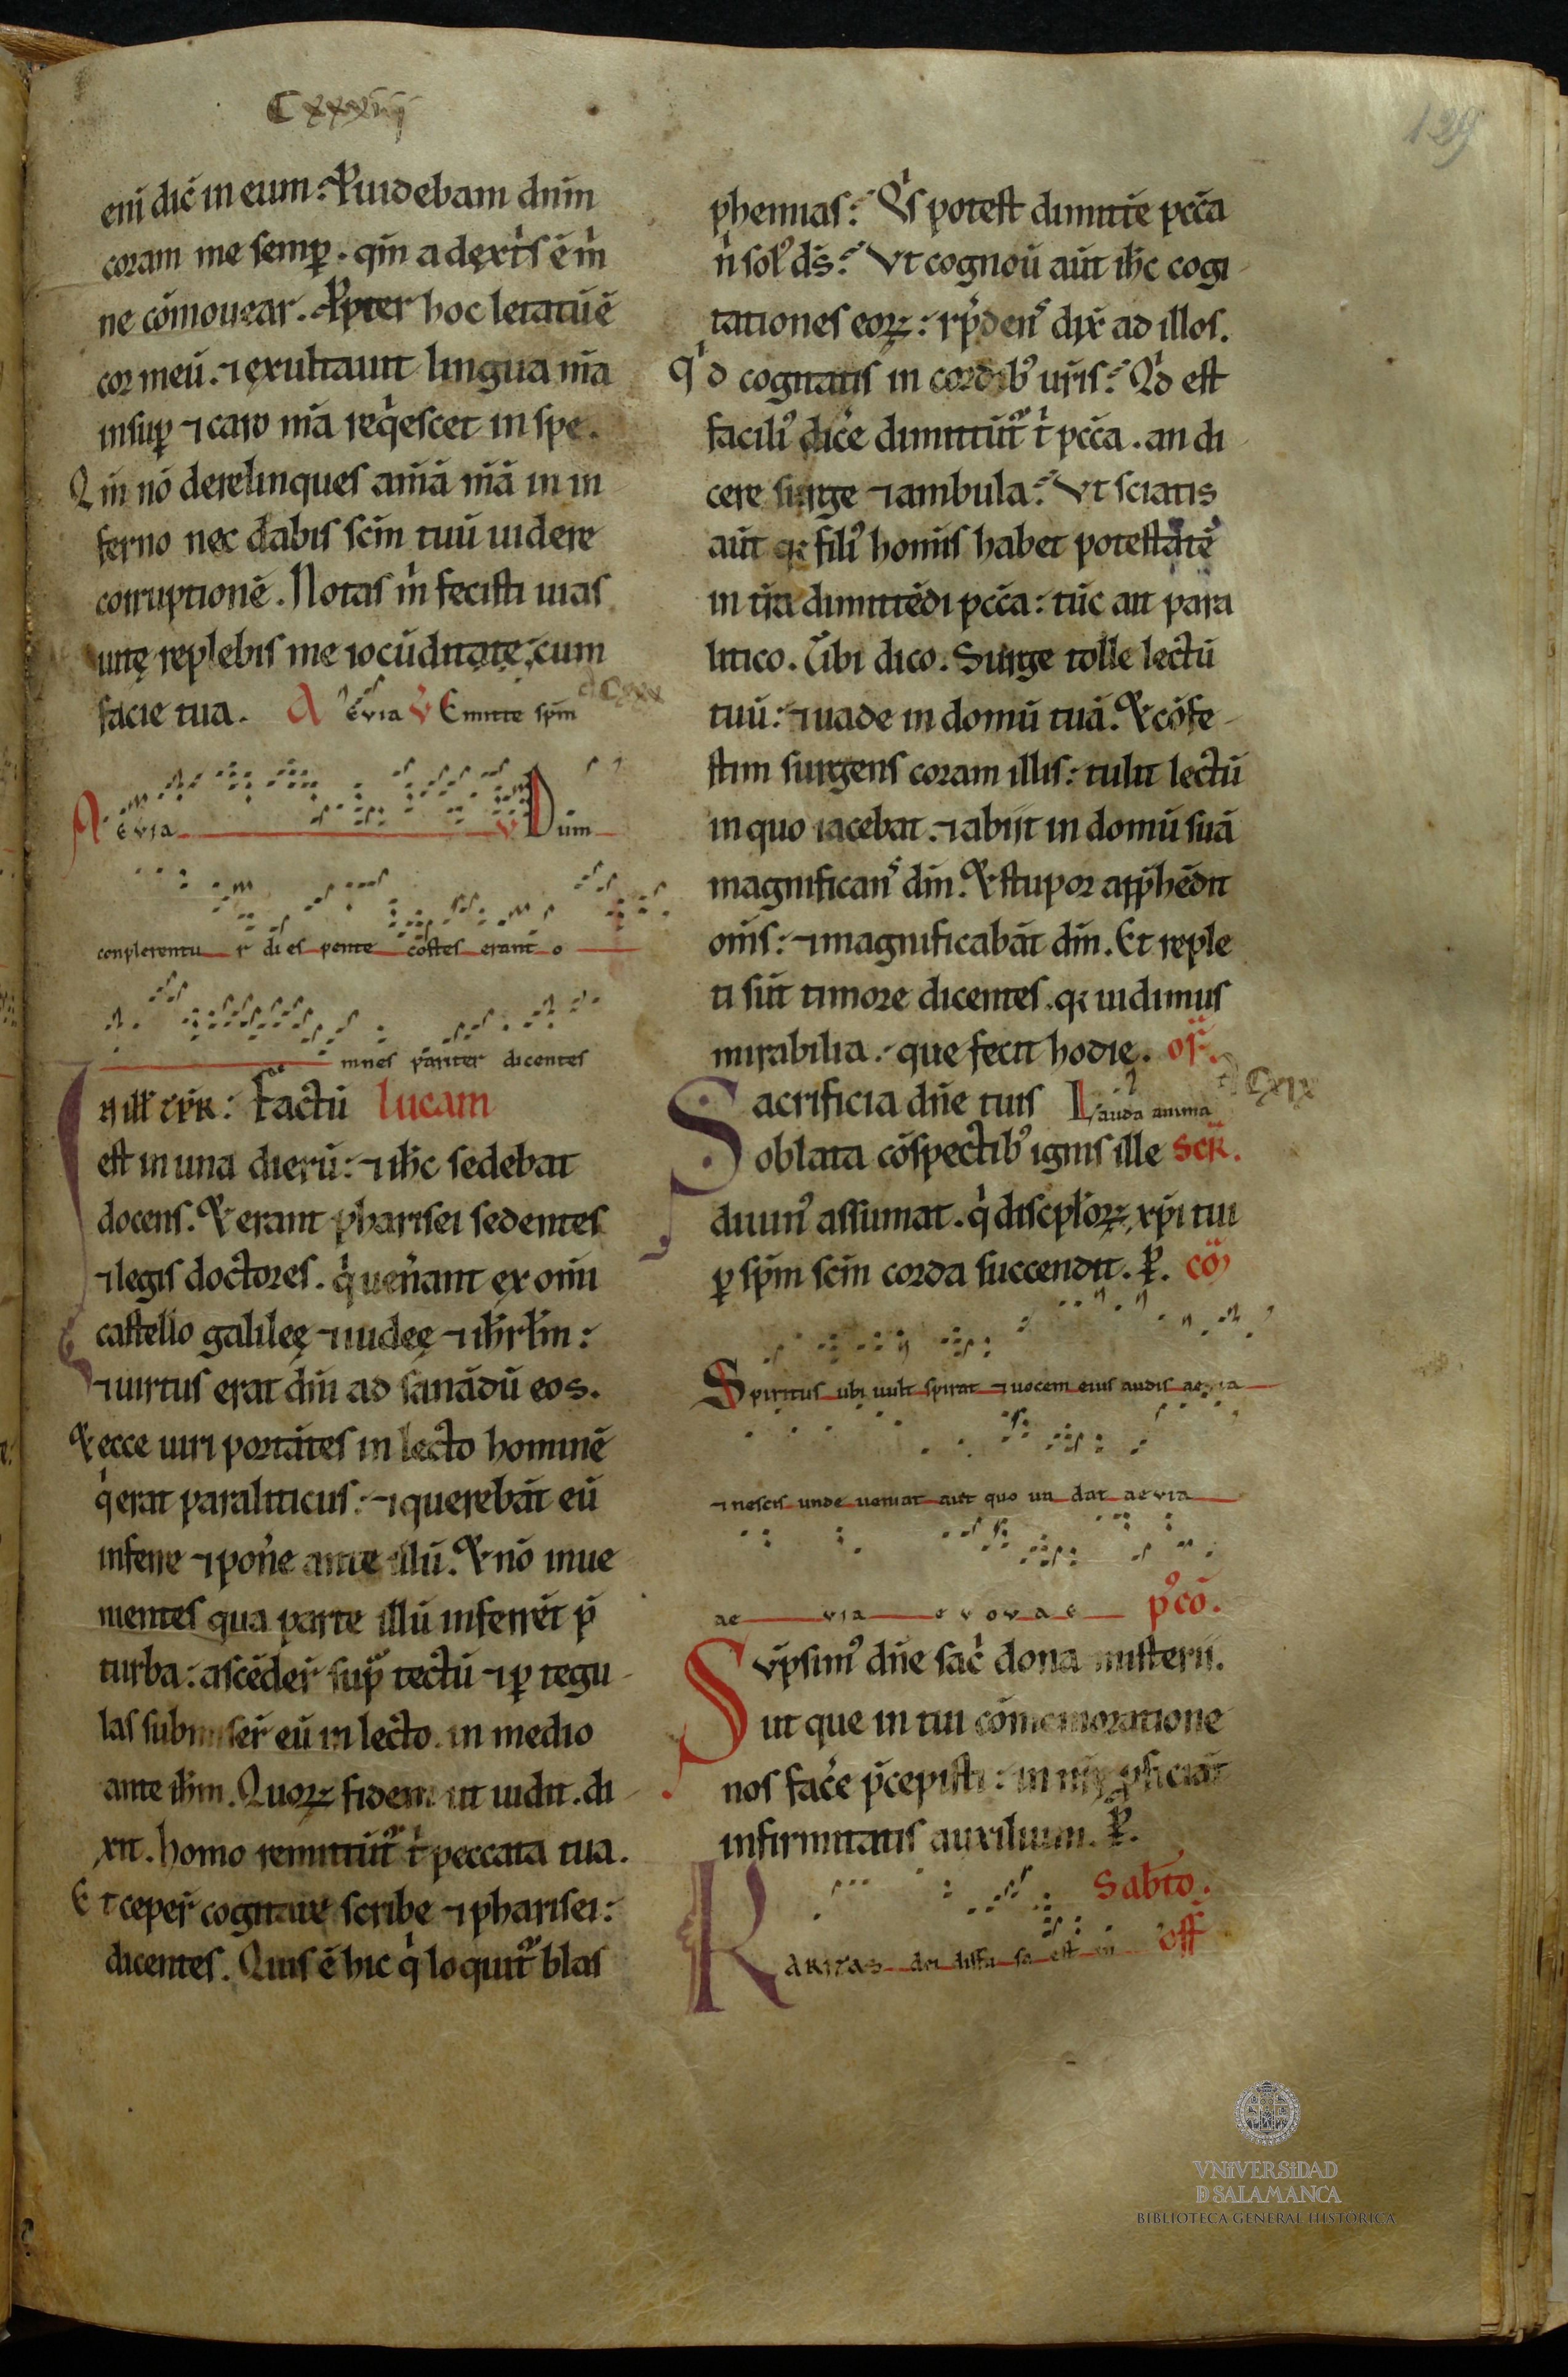 Cxxxiiij
129
eni dic̄ in eum: Puidebam dn̄m
coram me semꝑ. qm̄ a dextᷤis ē m̄
ne cōmouear. Ꝓpter hoc letatū ē
cor meū. ⁊ exultauit lingua m̄a
insuꝑ ⁊ caro m̄a reqͥescet in spe.
Qm̄ nō derelinques am̄ā m̄ā in in
ferno nec dabis sc̄m tuū uidere
corruptionē. Notas m̄ fecisti uias
uitę replebis me iocūditate, cum
facie tua. A evia V Emitte sp̄m
Cxxx
A evia V Dum
conplerentu r di es pente costes erant o
mnes pariter dicentes
In ill' tp̄r: Factū lucam
est in una dierū: ⁊ ih̄c sedebat
docens. Et erant pharisei sedentes
⁊ legis doctores. qͥ uen̄ant ex om̄i
castello galileę ⁊ iudeę ⁊ ih̄rl̄m:
⁊ uirtus erat dn̄i ad sanādū eos.
Et ecce uiri portātes in lecto hominē
qͥ erat paraliticus: ⁊ querebāt eū
inferre ⁊ pon̄e ante illū. Et nō inue
nientes qua parte illū inferrēt p̄
turba: ascēder̄ sup̄ tectū ⁊ ꝑ tegu
las submiser̄ eū in lecto. in medio
ante ih̄m. Quoꝝ fidem ut uidit. di
xit. homo remittūtᷣ tͥ peccata tua.
Et ceper̄ cogitare scribe ⁊ pharisei:
dicentes. Quis ē hic qͥ loquitᷣ blas
phemias: Qͥs potest dimitte pcc̄a
nͥ solꝰ dS̄: Vt cognoū aūt ih̄c cogi
tationes eoꝝ: rp̄denˢ dix̄ ad illos.
Qͥd cogitatis in cordibꝰ ur̄is: Qͥd est
faciliꝰ dic̄e dimittūtᷣ tͥ pcc̄a. an di
cere surge ⁊ ambula: Vt sciatis
aūt qꝛ filiꝰ homīs habet potestatē
in tr̄a dimittēdi pcc̄a: tūc ait para
litico. Tibi dico. Surge tolle lectū
tuū: ⁊ uade in domū tuā. Et cōfe
stim surgens coram illis: tulit lectū
in quo iacebat. ⁊ abijt in domū suā
magnificanˢ dm̄. Et stupor app̄hēdit
om̄s: ⁊ magnificabāt dm̄. Et reple
ti sūt timore dicentes. qꝛ uidimus
mirabilia. que fecit hodie. of.
Sacrificia dn̄e tuis Lauda anima
Cxix
oblata cōspectibꝰ ignis ille scr̄.
diuinꝰ assumat. qͥ discipl̄oꝝ xp̄i tui
ꝑ sp̄m sc̄m corda succendit. P. cō
Spiritus ubi uult spirat ⁊ uocem eius audis aevia
⁊ nescis unde ueniat aut quo ua dat aevia
ae via e v o v a e pꝰcō.
Sūpsimꝰ dn̄e sac̄ dona misterii.
ut que in tui cōmemoratione
nos fac̄e p̄cepisti: in nr̄e ꝓficiāt
infirmitatis auxilium. P.
Sabto.
KARITAS dei diffu sa est in off̄
VNiVERSiDAD
D SALAMANCA
BIBLIOTECA GENERAL HISTÓRICA